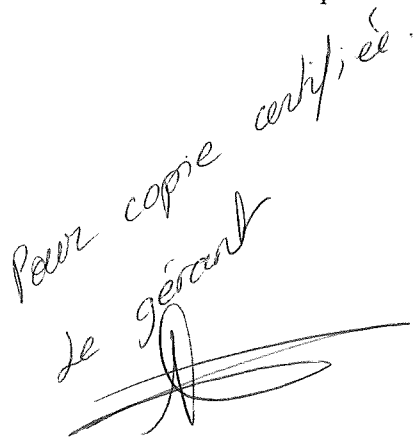 Pour copie certifiée.
Le gérant